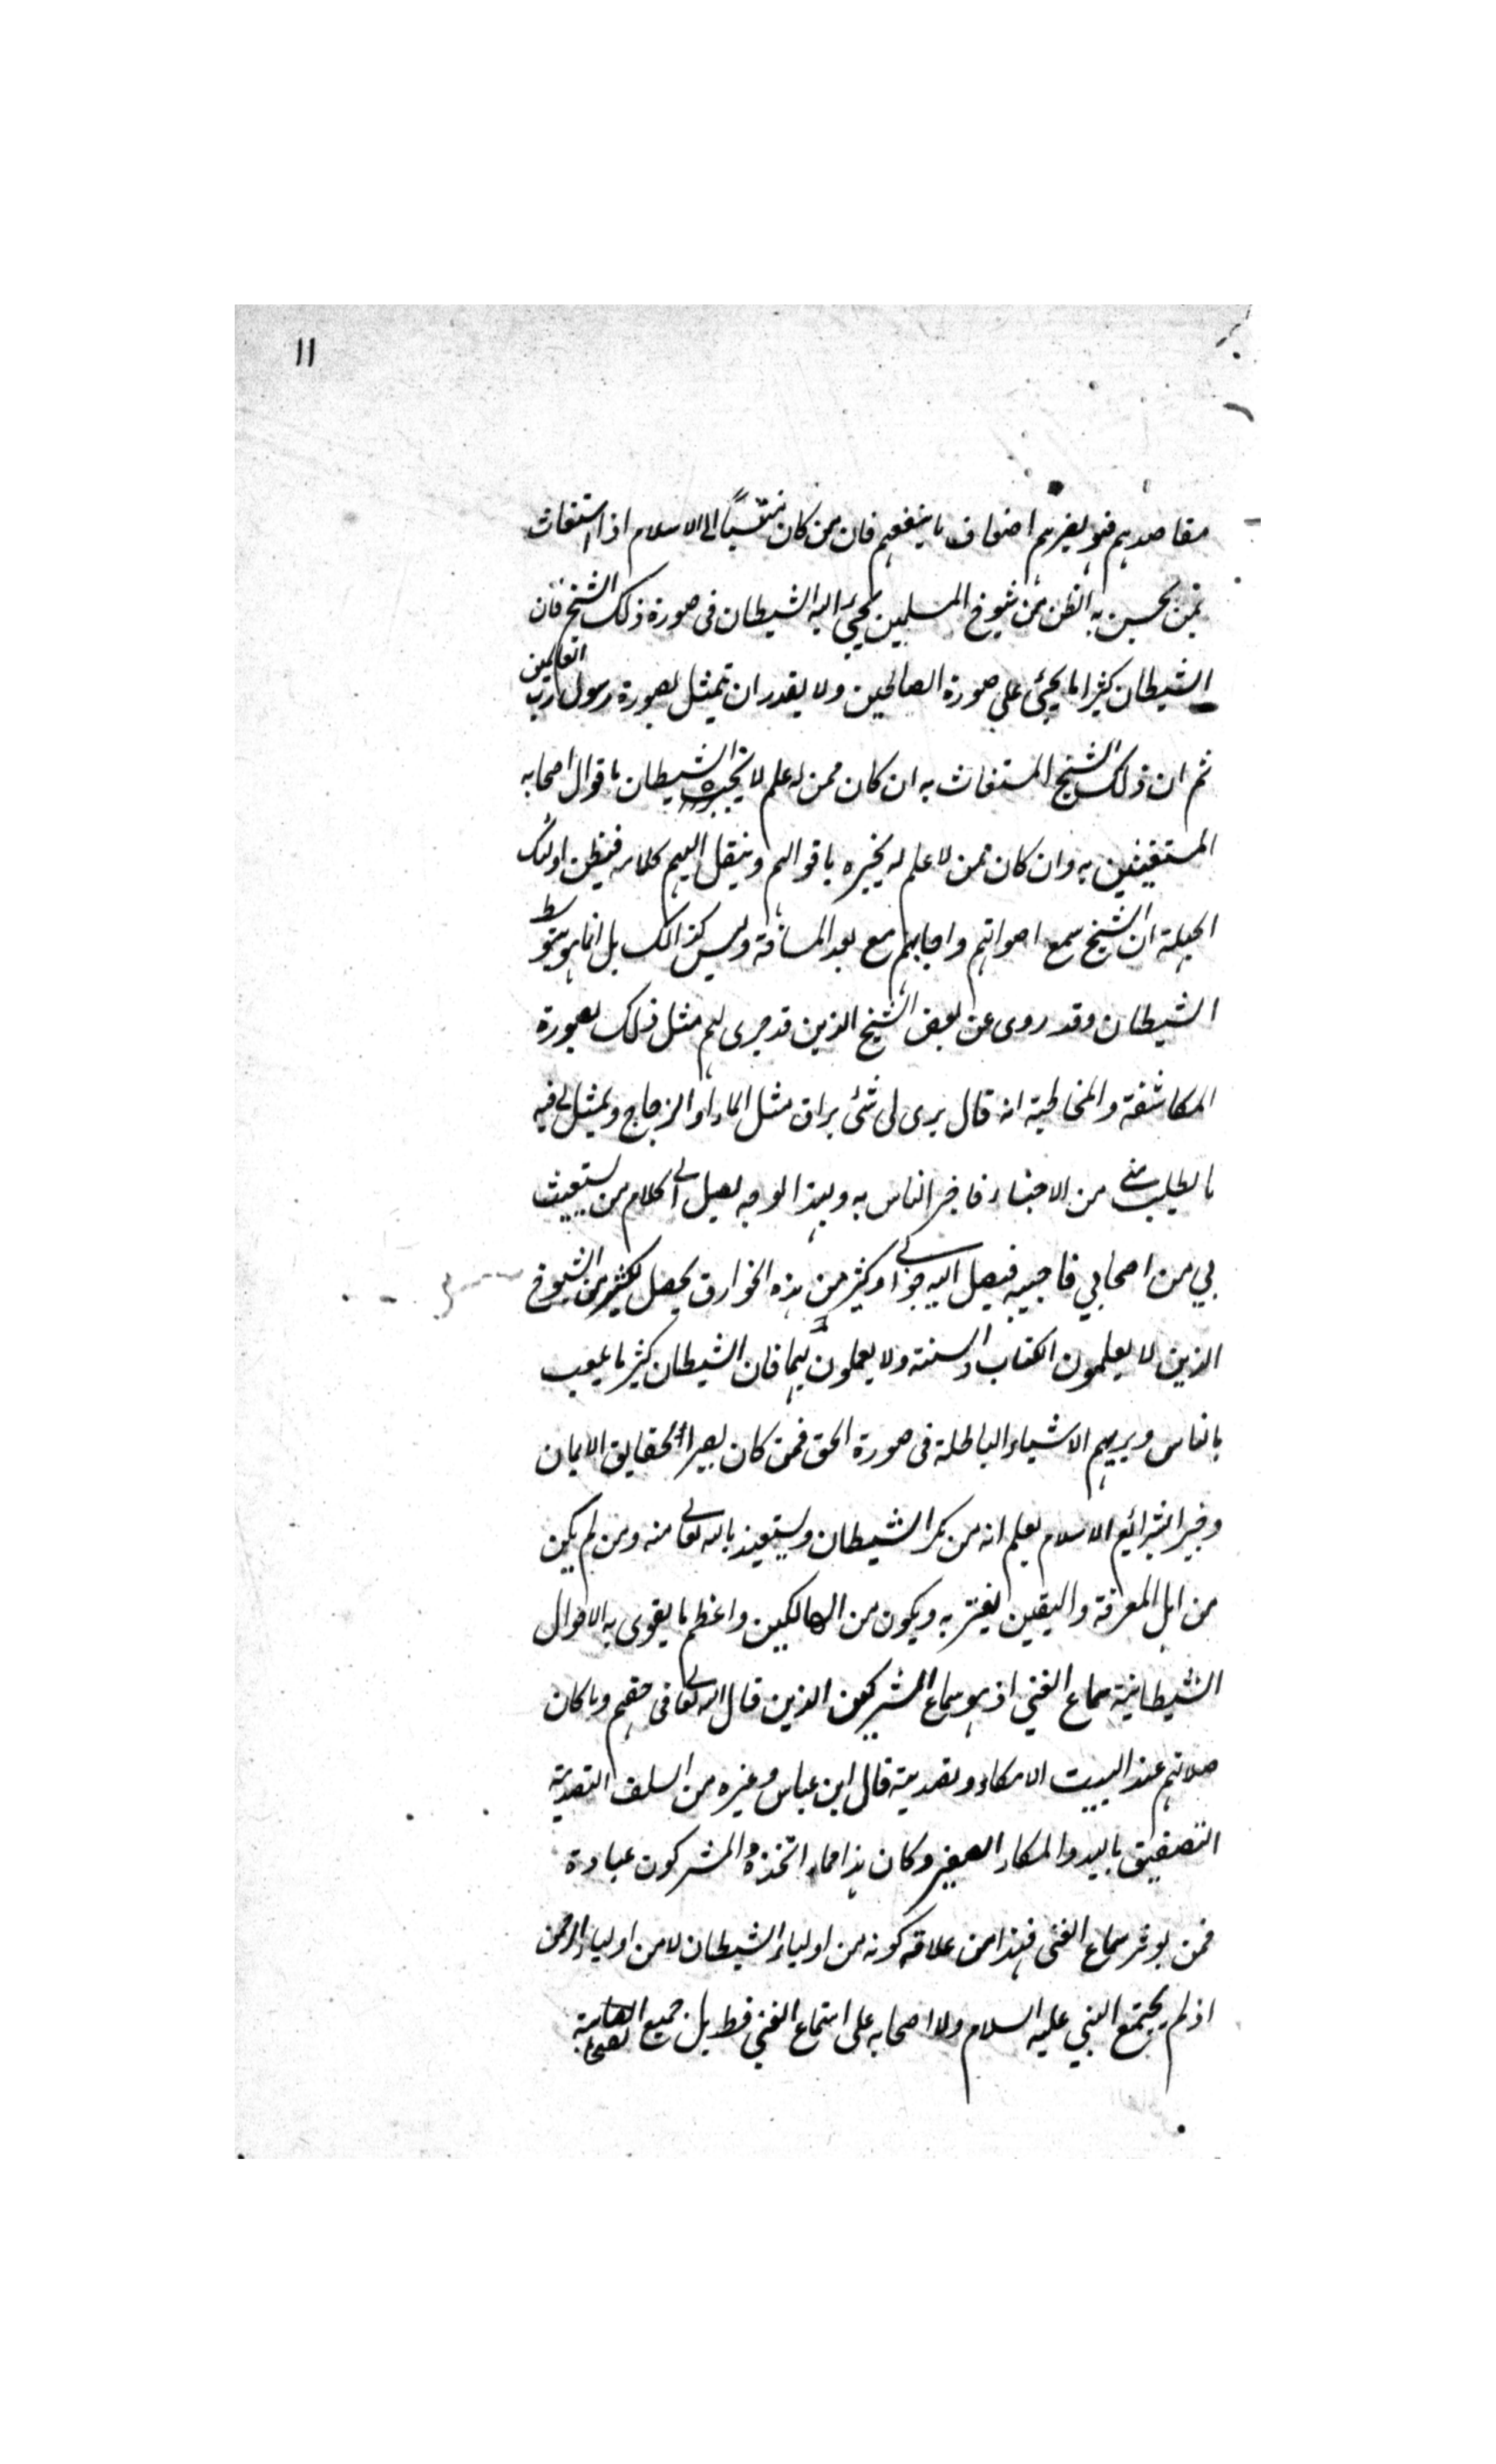 ١١
مقاصدهم فهو يضرهم اضعاف ما ينفعهم فان من كان منتسباً الى الاسلام اذا استغاث
بمن يحسن به الظن من شيوخ المسلمين يجيئ اليه الشيطان فى صورة ذلك الشيخ فان
الشيطان كثيرا ما يجيئ على صورة الصالحين ولا يقدر ان يتمثل بصورة رسول رب العالمين
ثم ان ذلك الشيخ المستغاث به ان كان ممن له علم لا يخبره الشيطان باقوال اصحابه
المستغيثين به وان كان ممن لا علم له يخبره باقوالهم وينقل اليهم كلامه فيظن اولئك
الجهلة ان الشيخ سمع اصواتهم واجابهم مع بعد المسافة وليس كذالك بل انما هو بتوسط
الشيطان وقد روى عن بعض الشيخ الذين قد جرى لهم مثل ذلك بصورة
المكاشفة والمخاطبة انه قال يرى لى شئ براق مثل الماء او الزجاج ويمثل لى فيه
ما يطلب منى من الاخبار فاخبر الناس به وبهذا الوجه يصل الى كلام من يستغيث
بي من اصحابي فاجيبه فيصل اليه جوابى وكثير من هذه الخوارق يحصل لكثير من الشيوخ
الذين لا يعلمون الكتاب والسنة ولا يعملون بهما فان الشيطان كثيرا ما يلعب
بالناس ويريهم الاشياء الباطلة فى صورة الحق فمن كان بصيرا بحقايق الايمان
وخبيرا بشرائع الاسلام يعلم انه من مكر الشيطان ويستعيذ بالله تعالى منه ومن لم يكن
من اهل المعرفة واليقين يغتر به ويكون من الهالكين واعظم ما يقوى به الاحوال
الشيطانية سماع الغني اذ هو سماع المشركين الذين قال الله تعالى فى حقهم وما كان
صلاتهم عند البيت الا مكاء وتصدية قال ابن عباس وغيره من السلف التصدية
التصفيق باليد والمكاء الصفير وكان هذا مما اتخذه المشركون عبادة
فمن يوثر سماع الغنى فهذا من علاقه كونه من اولياء الشيطان لا من اولياء الرحمن
اذ لم يجتمع النبي عليه السلام ولا اصحابه على استماع الغني قط بل جميع